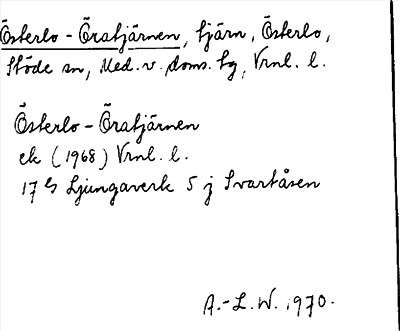 Österlo - Öratjärnen, tjärn, Österlo,
Stöde sn, Med. v. doms. tg, Vrnl. l.
Österlo - Öratjärnen
ek (1968) Vrnl. l.
17 Ljungaverk 5 j Svartåsen
A.-L. W. 1970.